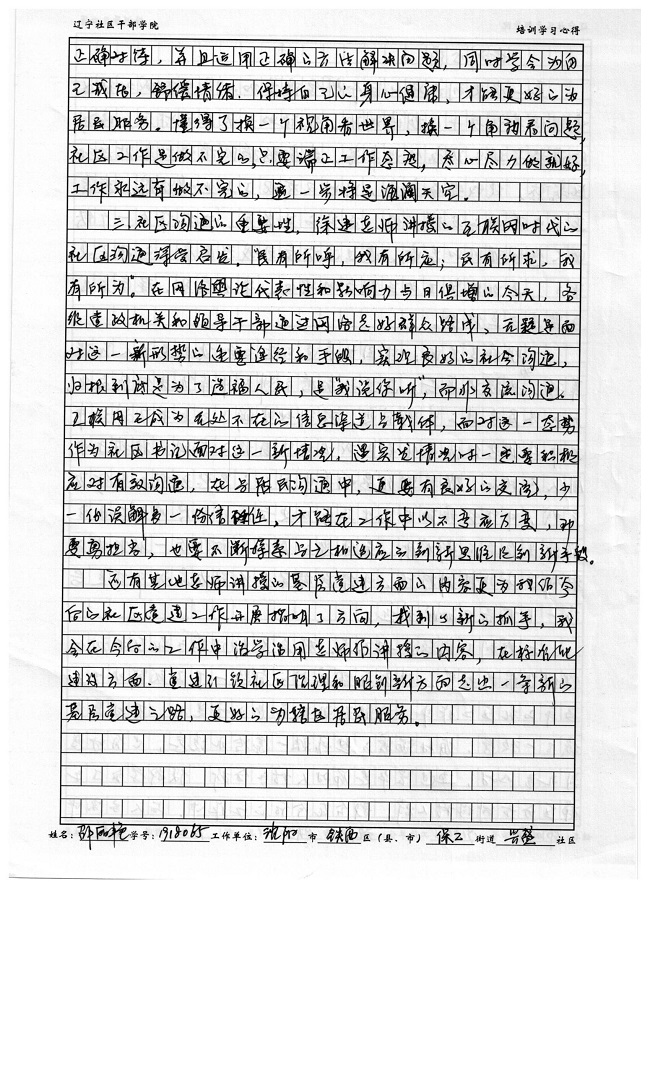 辽宁社区干部学院
培训学习心得
正确对待，并且运用正确的方法解决问题，同时学会为自
己减压，舒缓情绪，保持自己的身心健康，才能更好的为
居民服务。懂得了换一个视角看世界，换一个角度看问题，
社区工作是做不完的，只要端正工作态度，尽心尽力做就好，
工作永远有做不完的，退一步将是海阔天空。
三.社区沟通的重要性，徐建老师讲授的互联网时代的
社区沟通深受启发。“民有所呼，我有所应；民有所求，我
有所为”。在网络舆论代表性和影响力与日俱增的今天，各
级党政机关和领导干部通过网络走好群众路线，无疑是面
对这一新形势的重要途径和手段，实现良好的社会沟通，
归根到底是为了造福人民，是“我说你听”，而非交流沟通。
互联网已成为无处不在的信息渠道与载体，面对这一态势
作为社区书记面对这一新情况，遇突发情况时一定要积极
应对有效沟通，在与居民沟通中，更要有良好的交流，少
一份误解多一份信任，才能在工作中以不变应万变，即
要勇担当，也要不断探索与之相适应的新思路新手段。
还有其他老师讲授的基层党建方面的内容更为我们今
后的社区党建工作开展指明了方向，找到了新的抓手，我
会在今后的工作中活学活用老师们讲授的内容，在标准化
建设方面.党建引领社区治理和服务方面走出一条新的
基层党建之路，更好的为辖区居民服务。
姓名：邵丽艳 学号：1918065 工作单位：沈阳 市 铁西 区（县、市） 保工 街道 社区